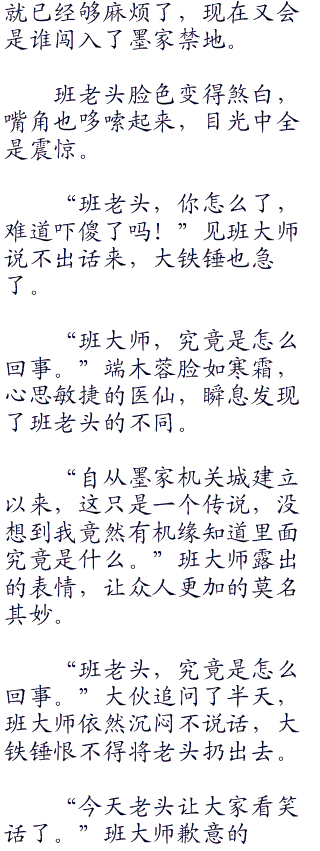 就已经够麻烦了，现在又会
是谁闯入了墨家禁地。
班老头脸色变得煞白，
嘴角也哆嗦起来，目光中全
是震惊。
“班老头，你怎么了，
难道吓傻了吗！”见班大师
说不出话来，大铁锤也急
了。
“班大师，究竟是怎么
回事。”端木蓉脸如寒霜，
心思敏捷的医仙，瞬息发现
了班老头的不同。
“自从墨家机关城建立
以来，这只是一个传说，没
想到我竟然有机缘知道里面
究竟是什么。”班大师露出
的表情，让众人更加的莫名
其妙。
“班老头，究竟是怎么
回事。”大伙追问了半天，
班大师依然沉闷不说话，大
铁锤恨不得将老头扔出去。
“今天老头让大家看笑
话了。”班大师歉意的